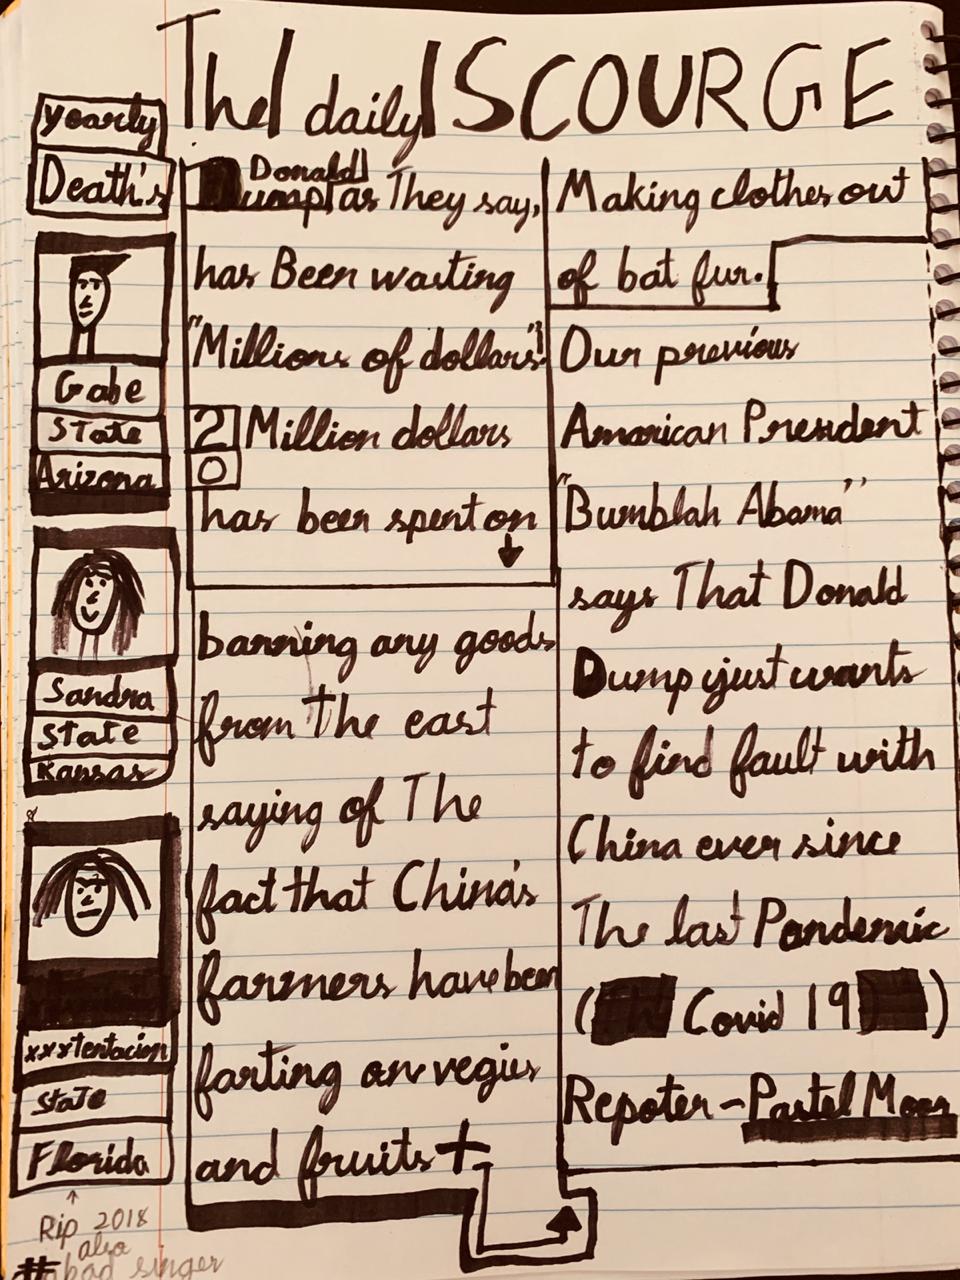 The daily SCOURGE
yearly
Death's
Gabe
State
Arizona
Sandra
State
Kansas
xxxtentacion
State
Florida
Rip 2018
also
#a bad singer
Donald
Dump as They say,
has Been wasting
"Millions of dollars"
20 Million dollars
has been spent on
banning any goods
from The east
saying of The
fact that China's
farmers have been
farting on vegies
and fruits +
Making clothes out
of bat fur.
Our previous
American President
"Bumblah Abama"
says That Donald
Dump just wants
to find fault with
China ever since
The last Pandemic
( Covid 19 )
Repoter - Pastel Moon